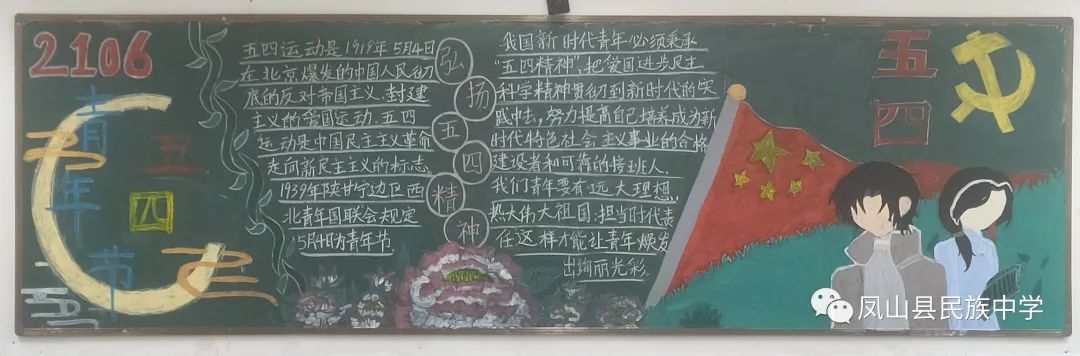 2106
青年节
五四
五四运动是1919年5月4日
在北京爆发的中国人民彻
底的反对帝国主义、封建
主义的爱国运动.五四
运动是中国民主主义革命
走向新民主主义的标志。
1939年陕甘宁边区西
北青年国联会规定
5月4日为青年节
弘扬五四精神
我国新时代青年必须秉承
“五四精神”,把爱国进步民主
科学精神贯彻到新时代的实
践中去,努力提高自己培养成为新
时代特色社会主义事业的合格
建设者和可靠的接班人.
我们青年要有远大理想,
热大伟大祖国,担当时代责
任这样才能让青年焕发
出绚丽光彩。
五四
凤山县民族中学